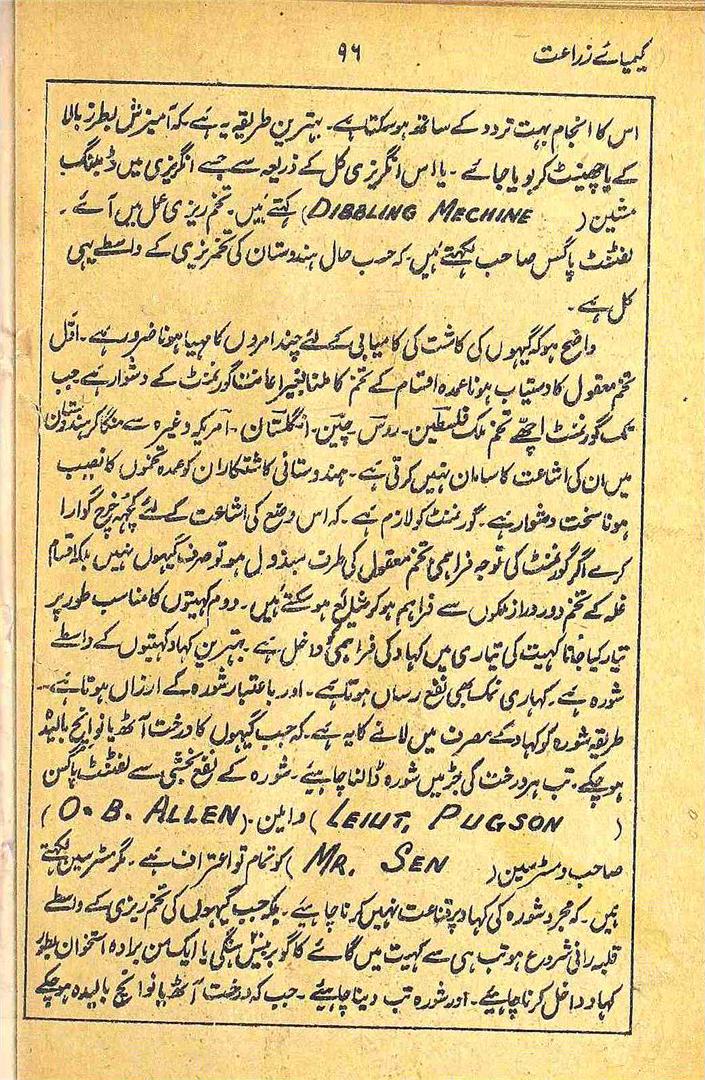 کیمیائے زراعت
۹۶
اس کا انجام بہت تردد کے ساتھ ہوسکتا ہے۔ بہترین طریقہ یہ ہے، کہ آمیزش بطرز بالا
کے یا چھینٹ کر بویا جائے۔ یا اس انگریزی کل کے ذریعہ سے جسے انگریزی میں ڈبلنگ
مشین (DIBBLING MECHINE) کہتے ہیں۔ تخم ریزی عمل میں آئے۔
لفٹنٹ پاگسن صاحب لکھتے ہیں۔ کہ حسب حال ہندوستان کی تخمریزی کے واسطے یہی
کل ہے۔
واضح ہو کہ گیہوں کی کاشت کی کامیابی کے لئے چند امروں کا مہیا ہونا ضرور ہے۔ اوّل
تخم معقول کا دستیاب ہونا عمدہ اقسام کے تخم کا ملنا بغیر اعانت گورنمنٹ کے دشوار ہے جب
تک گورنمنٹ اچھے تخم ملک فلسطین۔ روس۔ چین۔ انگلستان۔ امریکہ وغیرہ سے منگا کر ہندوستان
میں ان کی اشاعت کا سامان نہیں کرتی ہے۔ ہندوستانی کاشتکاران کو عمدہ تخموں کا نصیب
ہونا سخت دشوار ہے۔ گورنمنٹ کو لازم ہے۔ کہ اس وضع کی اشاعت کے لئے کچھ خرچ گوارا
کرے اگر گورنمنٹ کی توجہ فراہمی تخم معقول کی طرف مبذول ہو تو صرف گیہوں نہیں بلکہ اقسام
غلہ کے تخم دور دراز ملکوں سے فراہم ہو کر شائع ہو سکتے ہیں۔ دوم کھیتوں کا مناسب طور پر
تیار کیا جانا کھیت کی تیاری میں کہاد کی فراہمی داخل ہے۔ بہترین کہاد کھیتوں کے واسطے
شورہ ہے۔ کہاری نمک بھی نفع رساں ہوتا ہے۔ اور باعتبار شورہ کے ارزاں ہوتا ہے۔
طریقہ شورہ کو کہاد کے مصرف میں لانے کا یہ ہے۔ کہ جب گیہوں کا درخت آٹھ یا نو انچ بالیدہ
ہو چکے۔ تب ہر درخت کی جڑ میں شورہ ڈالنا چاہیئے۔ شورہ کے نفع بخشی سے لفٹنٹ پاگسن
(LEIUT. PUGSON) و ایلن۔ (O. B. ALLEN)
صاحب و مسٹر سین (MR. SEN) کو تمام تو اعتراف ہے۔ مگر مسٹر سین لکھتے
ہیں۔ کہ مجرد شورہ کی کہاد پر قناعت نہیں کرنا چاہیے۔ بلکہ جب گیہوں کی تخم ریزی کے واسطے
قلبہ رانی شروع ہو تب ہی سے کھیت میں گائے کا گوبر یا ایک من برادہ استخوان بطور
کہاد داخل کرنا چاہیئے۔ اور شورہ تب دینا چاہیئے۔ جب کہ درخت آٹھ یا نو انچ بالیدہ ہو چکے